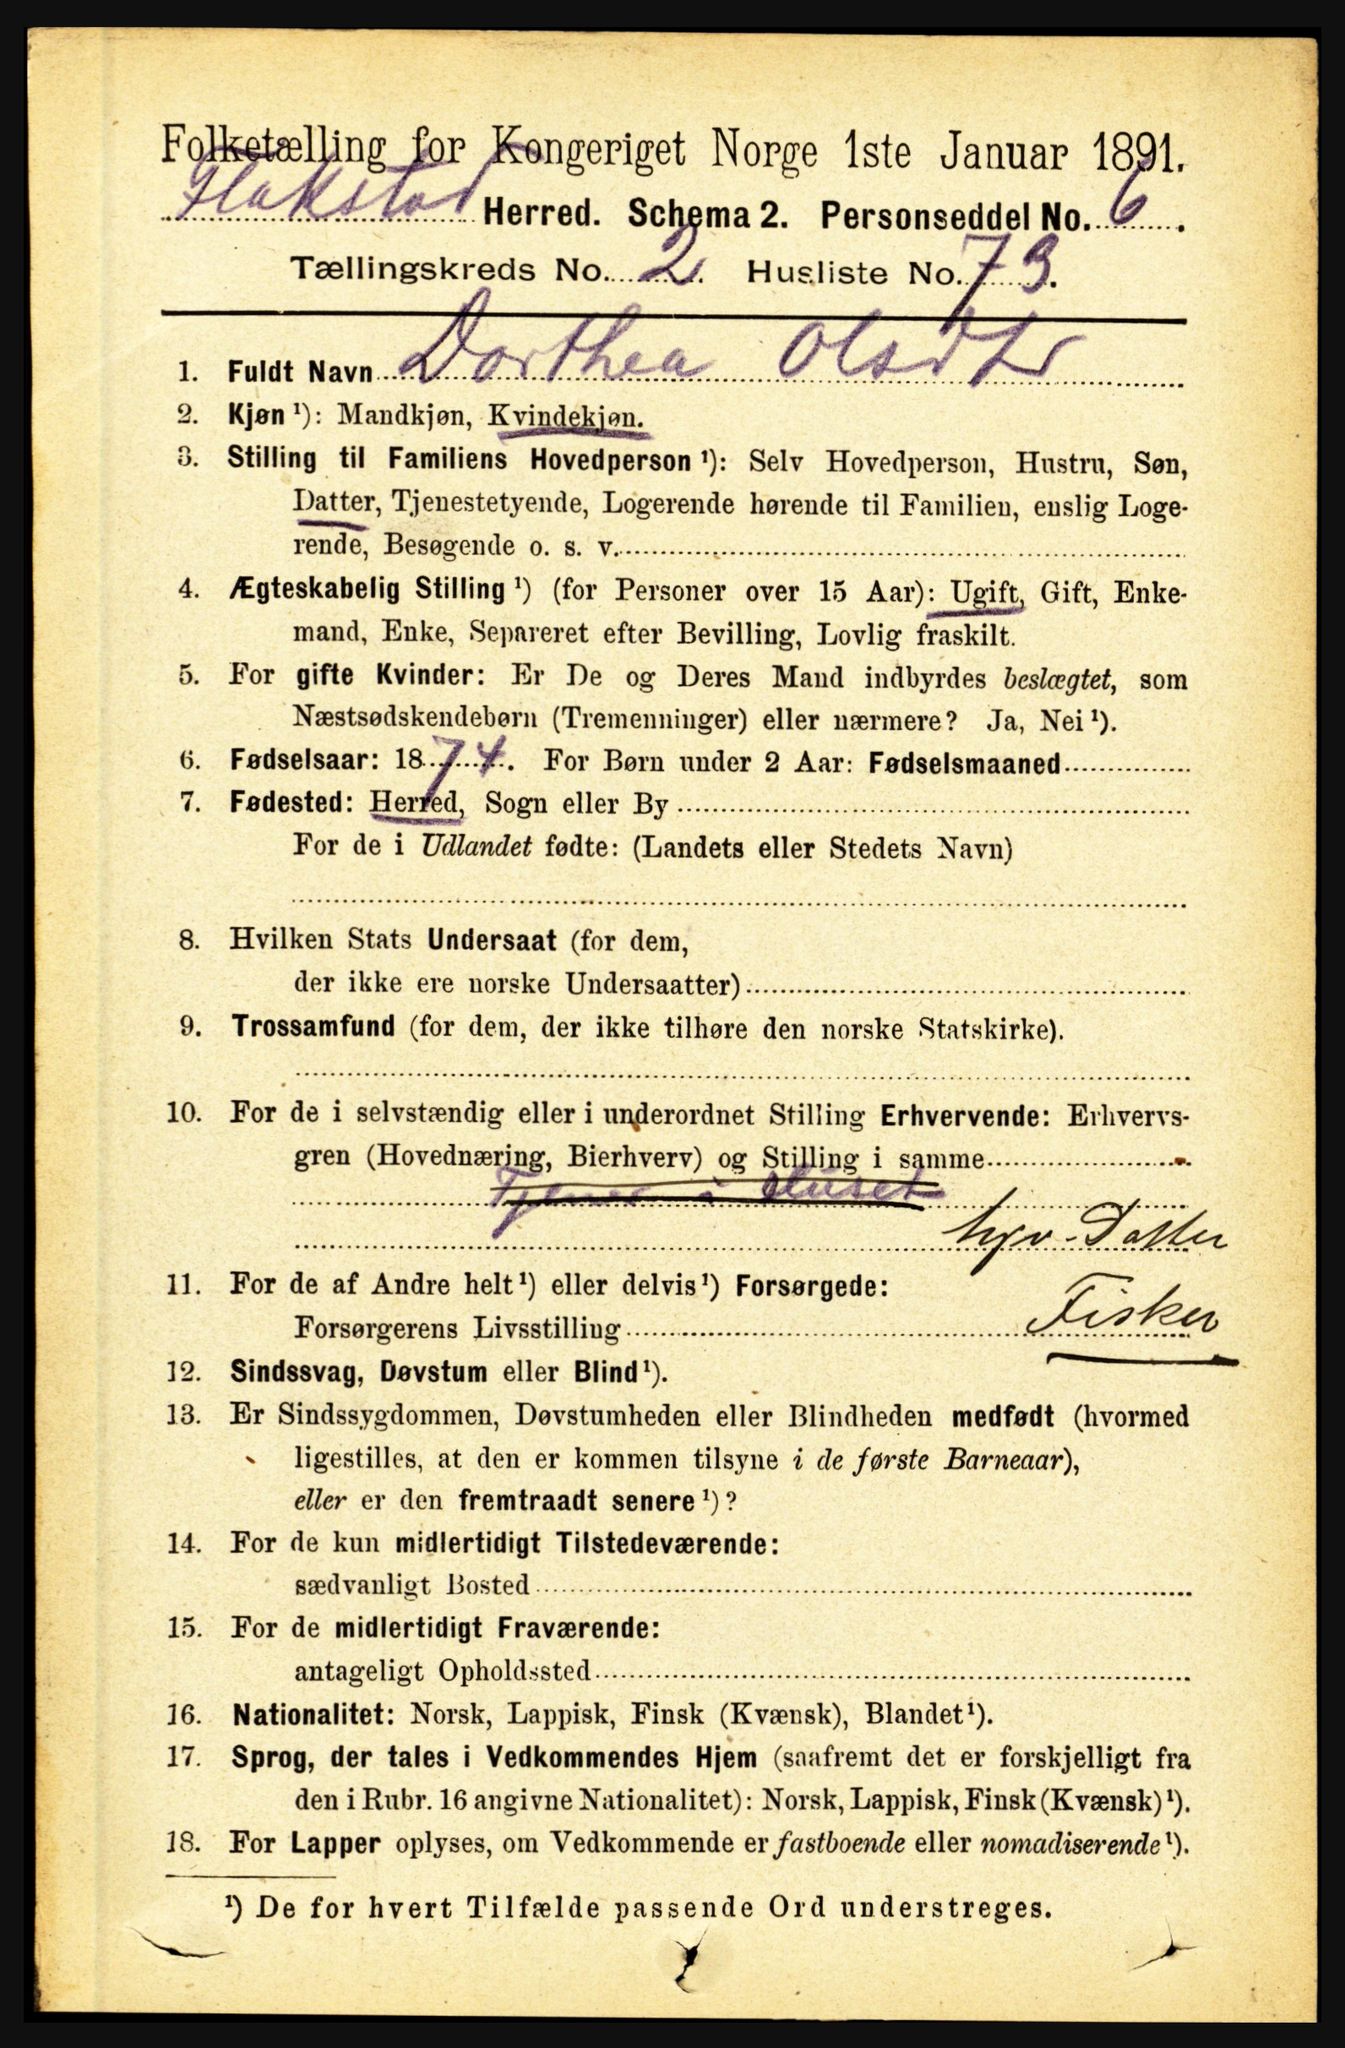 Folketælling for Kongeriget Norge 1ste Januar 1891.
Flakstad Herred. Schema 2. Personseddel No. 6.
Tællingskreds No. 2. Husliste No. 73.
1. Fuldt Navn Dorthea Olsdtr
2. Kjøn ¹): Mandkjøn, Kvindekjøn.
3. Stilling til Familiens Hovedperson ¹): Selv Hovedperson, Hustru, Søn,
Datter, Tjenestetyende, Logerende hørende til Familien, enslig Loge-
rende, Besøgende o. s. v.
4. Ægteskabelig Stilling ¹) (for Personer over 15 Aar): Ugift, Gift, Enke-
mand, Enke, Separeret efter Bevilling, Lovlig fraskilt.
5. For gifte Kvinder: Er De og Deres Mand indbyrdes beslægtet, som
Næstsødskendebørn (Tremenninger) eller nærmere? Ja, Nei ¹).
6. Fødselsaar: 1874. For Børn under 2 Aar: Fødselsmaaned
7. Fødested: Herred, Sogn eller By
For de i Udlandet fødte: (Landets eller Stedets Navn)
8. Hvilken Stats Undersaat (for dem,
der ikke ere norske Undersaatter)
9. Trossamfund (for dem, der ikke tilhøre den norske Statskirke).
10. For de i selvstændig eller i underordnet Stilling Erhvervende: Erhvervs-
gren (Hovednæring, Bierhverv) og Stilling i samme
Tjener i Huset
hjv. Datter
11. For de af Andre helt ¹) eller delvis ¹) Forsørgede:
Forsørgerens Livsstilling Fisker
12. Sindssvag, Døvstum eller Blind ¹).
13. Er Sindssygdommen, Døvstumheden eller Blindheden medfødt (hvormed
ligestilles, at den er kommen tilsyne i de første Barneaar),
eller er den fremtraadt senere ¹)?
14. For de kun midlertidigt Tilstedeværende:
sædvanligt Bosted
15. For de midlertidigt Fraværende:
antageligt Opholdssted
16. Nationalitet: Norsk, Lappisk, Finsk (Kvænsk), Blandet ¹).
17. Sprog, der tales i Vedkommendes Hjem (saafremt det er forskjelligt fra
den i Rubr. 16 angivne Nationalitet): Norsk, Lappisk, Finsk (Kvænsk) ¹).
18. For Lapper oplyses, om Vedkommende er fastboende eller nomadiserende ¹).
¹) De for hvert Tilfælde passende Ord understreges.